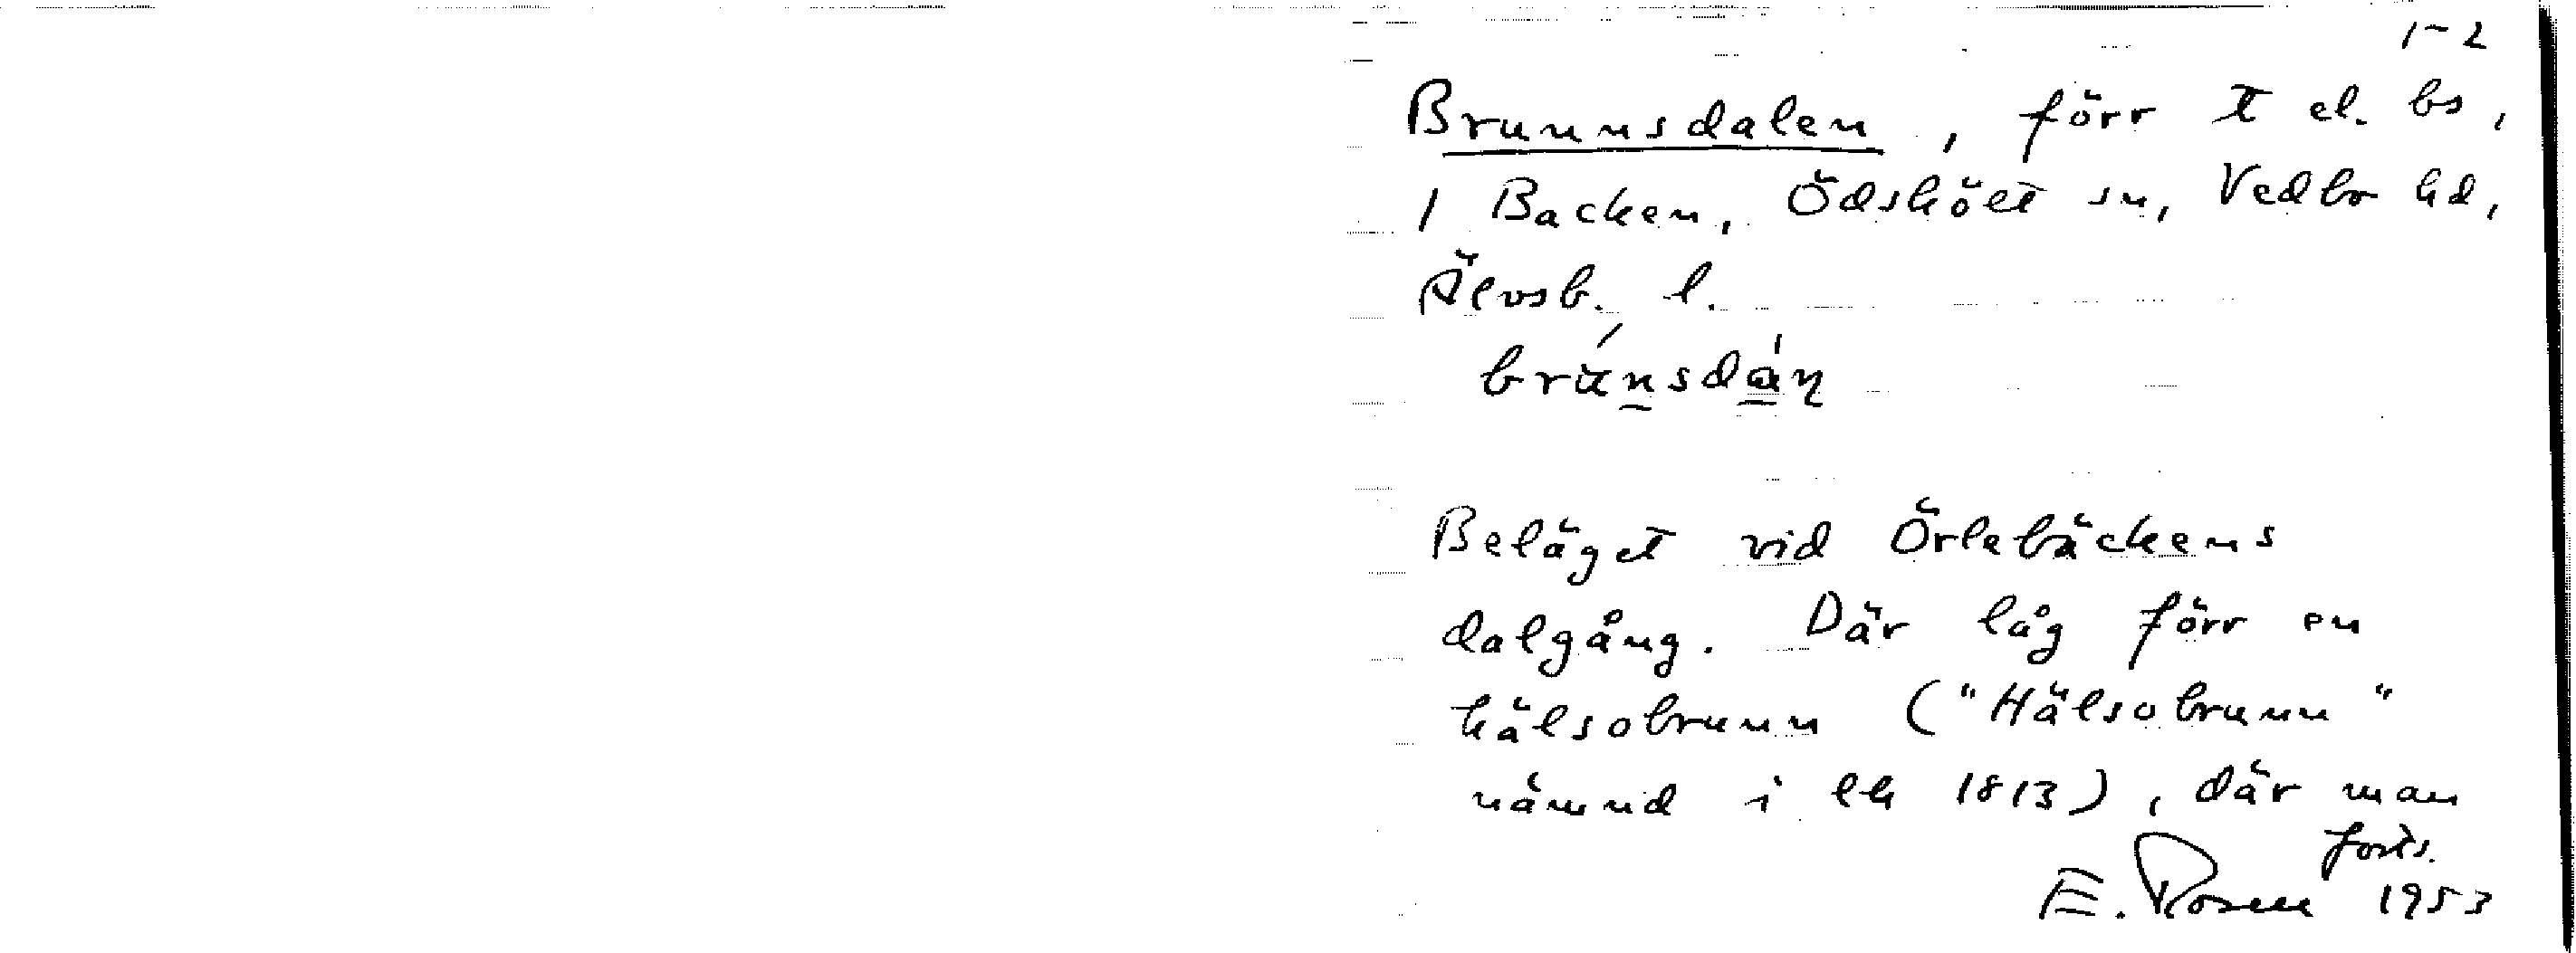 1-2
Brunnsdalen, förr t el. bs,
1 Backen, Ödskölt sn, Vedbo hd,
Älvsb. l.
Beläget vid Örlebäckens
dalgång. Där låg förr en
hälsobrunn ("Hälsobrunn"
nämnd i lh 1813), där man
forts.
E. Rosen 1953